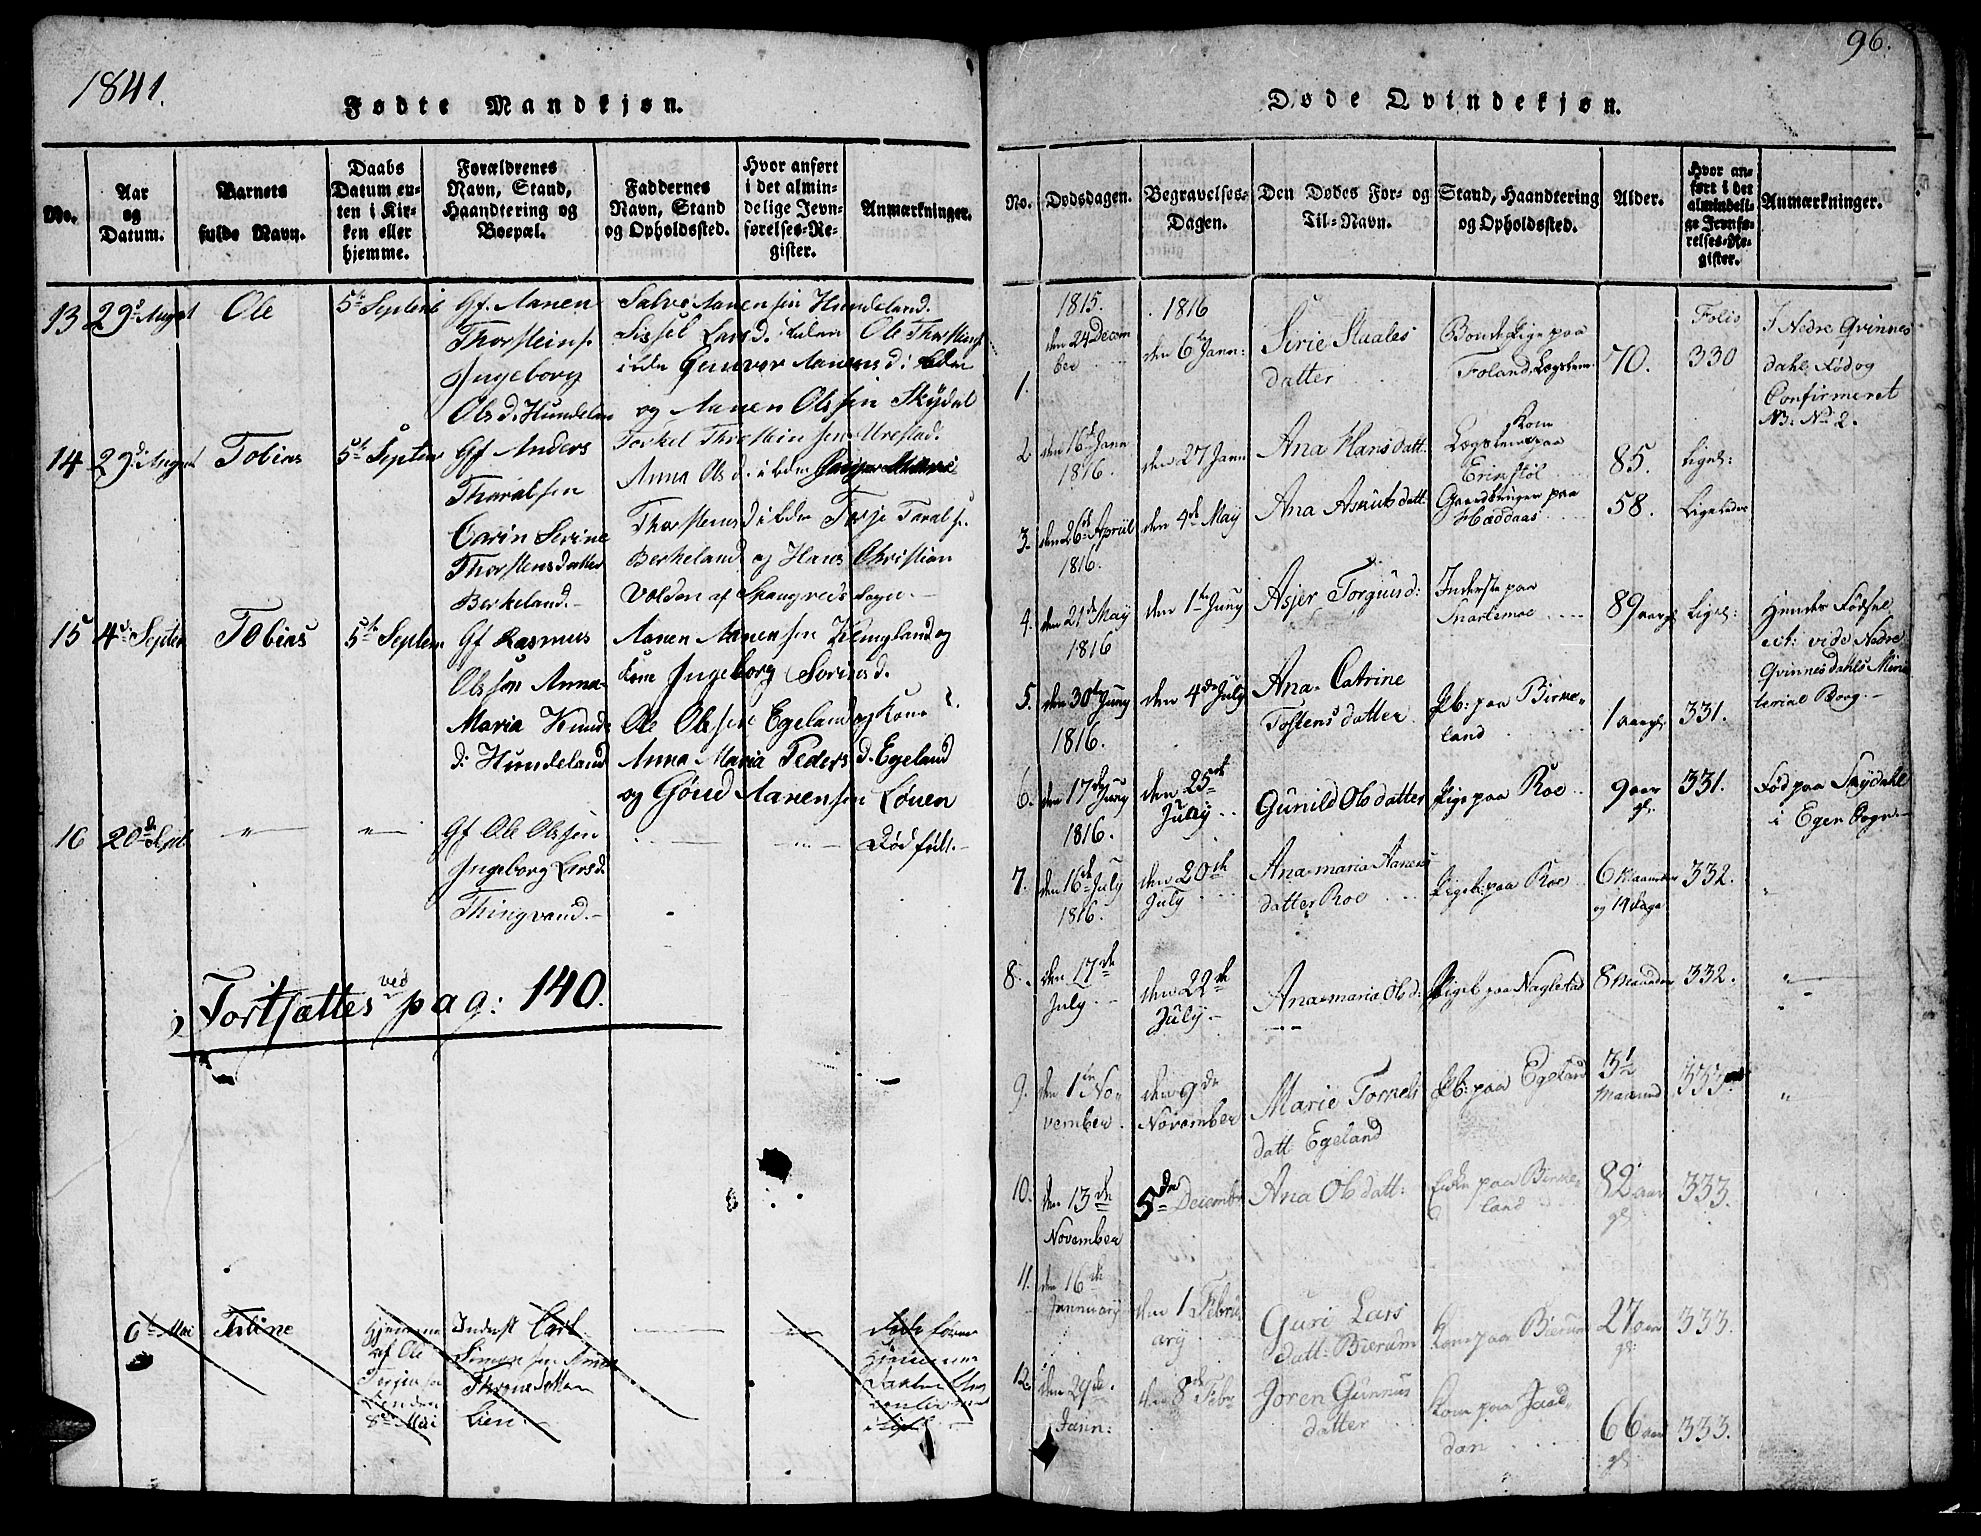 1841.
Fødte Mandkjøn.
No.
Aar
og
Datum.
Barnets
fulde Navn.
Daabs
Datum en-
ten i Kir-
ken eller
hjemme.
Forældrenes
Navn, Stand,
Haandtering og
Boepæl.
Faddernes
Navn, Stand
og Opholdssted.
Hvor anført
i det almin-
delige Jevn-
førelses-Re-
gister.
Anmærkninger.
13 29d August Ole 5t Septemb
Gf. Aanen
Thorsteins.
Ingeborg
Olsd. Hundelan
Salve Aanensen Hundeland.
Sissel Larsd. ibdem Ole Thorstens
ibdm Gunvor Aanensd. ibdm
og Aanen Olssen Skÿdal
14 29d August Tobias 5t Septem
Gf Anders
Tharalsen
Carin Serine
Thorstensdatter
Berkeland.
Torkel Throsteinsen Urestad.
Anna Olsd. ibdm
Thorstensd ibdm Terje Taralss.
Berkeland og Hans Christian
Volden af Spangreids Sogn.
15 4d Septem Tobias 5t Septem
Gf Rasmus
Olssøn Anna
Maria Knuds
d. Hundeland
Aanen Aanensen Ringland og
Kone Ingeborg Sorensd.
Ole Olssen Egeland og Kone
Anna Maria Pedersd. Egeland
og Gönd Aanensen Löuen
16 20d Sept " "
Gf Ole Olssen
Ingeborg Larsd.
Thingvand.
Död född.
Fortsættes ved pag: 140.
6te Mai Taline
Hjemme
af Ole
Lenden
8de Mai
Inderst Carl
Simonsen Anna
Thronsdatter
Lien.
96.
Døde Qvindekjøn.
No.
Dødsdagen.
Begravelses-
Dagen.
Den Dødes For- og
Til-Navn.
Stand, Haandtering
og Opholdssted.
Alder.
Hvor an-
ført i det
almindeli-
ge Jevnfø-
relses-Re-
gister.
Anmærkninger.
1. 1815. den 24 Decem
ber
1816 den 6te Jann:
Sirie Staales
datter
Bonde Pige paa
Foland, Lægslem
70.
Folio
330
I Nedre Qvinnes
dahl Föd og
Confirmeret
NB: No 2.
2. den 16de Jann
1816. den 27 Jann
Ana Hansdatt
Kone
Lægslem paa
Erinstöl
85. Ligel:
3. den 26de Apriil
1816. den 4de Maÿ
Ana Asnubsdatt.
Gaardbruger paa
Hæddaas
58. Ligeledes
4. den 21de Maÿ
1816 den 1te Junÿ
Asjer Torgiusd:
Inderste paa
Snartemoe
89 aar gl Ligel:
Hendes Födsel
ect: vide Nedre
Qvinnesdahls Minis
terial Boog.
5. den 30te Junÿ
1816. den 4de Julÿ
Ana Catrine
Tostensdatter
Pb: paa Birke-
land
1 aar gl. 331.
6. den 17de Junÿ
1816. den 25de
Julÿ
Gunild Olsdatter Pige paa Roe 9 aar
gl. 331.
Föd paa Skÿdahl
i Egen Sogn.
7. den 16de July
1816. den 20de
July
Ana maria Aanens
datter Roe
Pigeb: paa Roe 6 Maaneder
og 14 dage 332. "
8. den 17de
July den 22de
Julÿ
Ana maria Olsd: Pigeb paa Naglestad 8 Maaneder 332. "
9. den 1te No-
vember den 9de
November
Marie Tornels
datt Egeland
Pb: paa Egeland 3½
Maaned 333. "
10. den 13de
November 5de Decembr
Ana Olsdatt: Enke paa Birke-
land 82 aar
gl. 333.
11. den 16de
Jannuarÿ den 1 Febru
arÿ
Guri Lars
datt: Bierum
Kone paa Bierum 27 aar
gl: 333.
12. den 29de
Jann: den 8de Febr
Joren Gunnus
datter
Kone paa Jaad-
dan 66 aar
gl. 333.